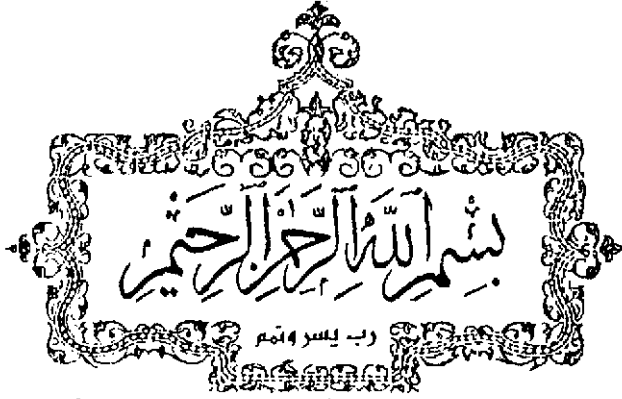 بِسْمِ اللَّهِ الرَّحْمَنِ الرَّحِيمِ
رب يسر وتمم